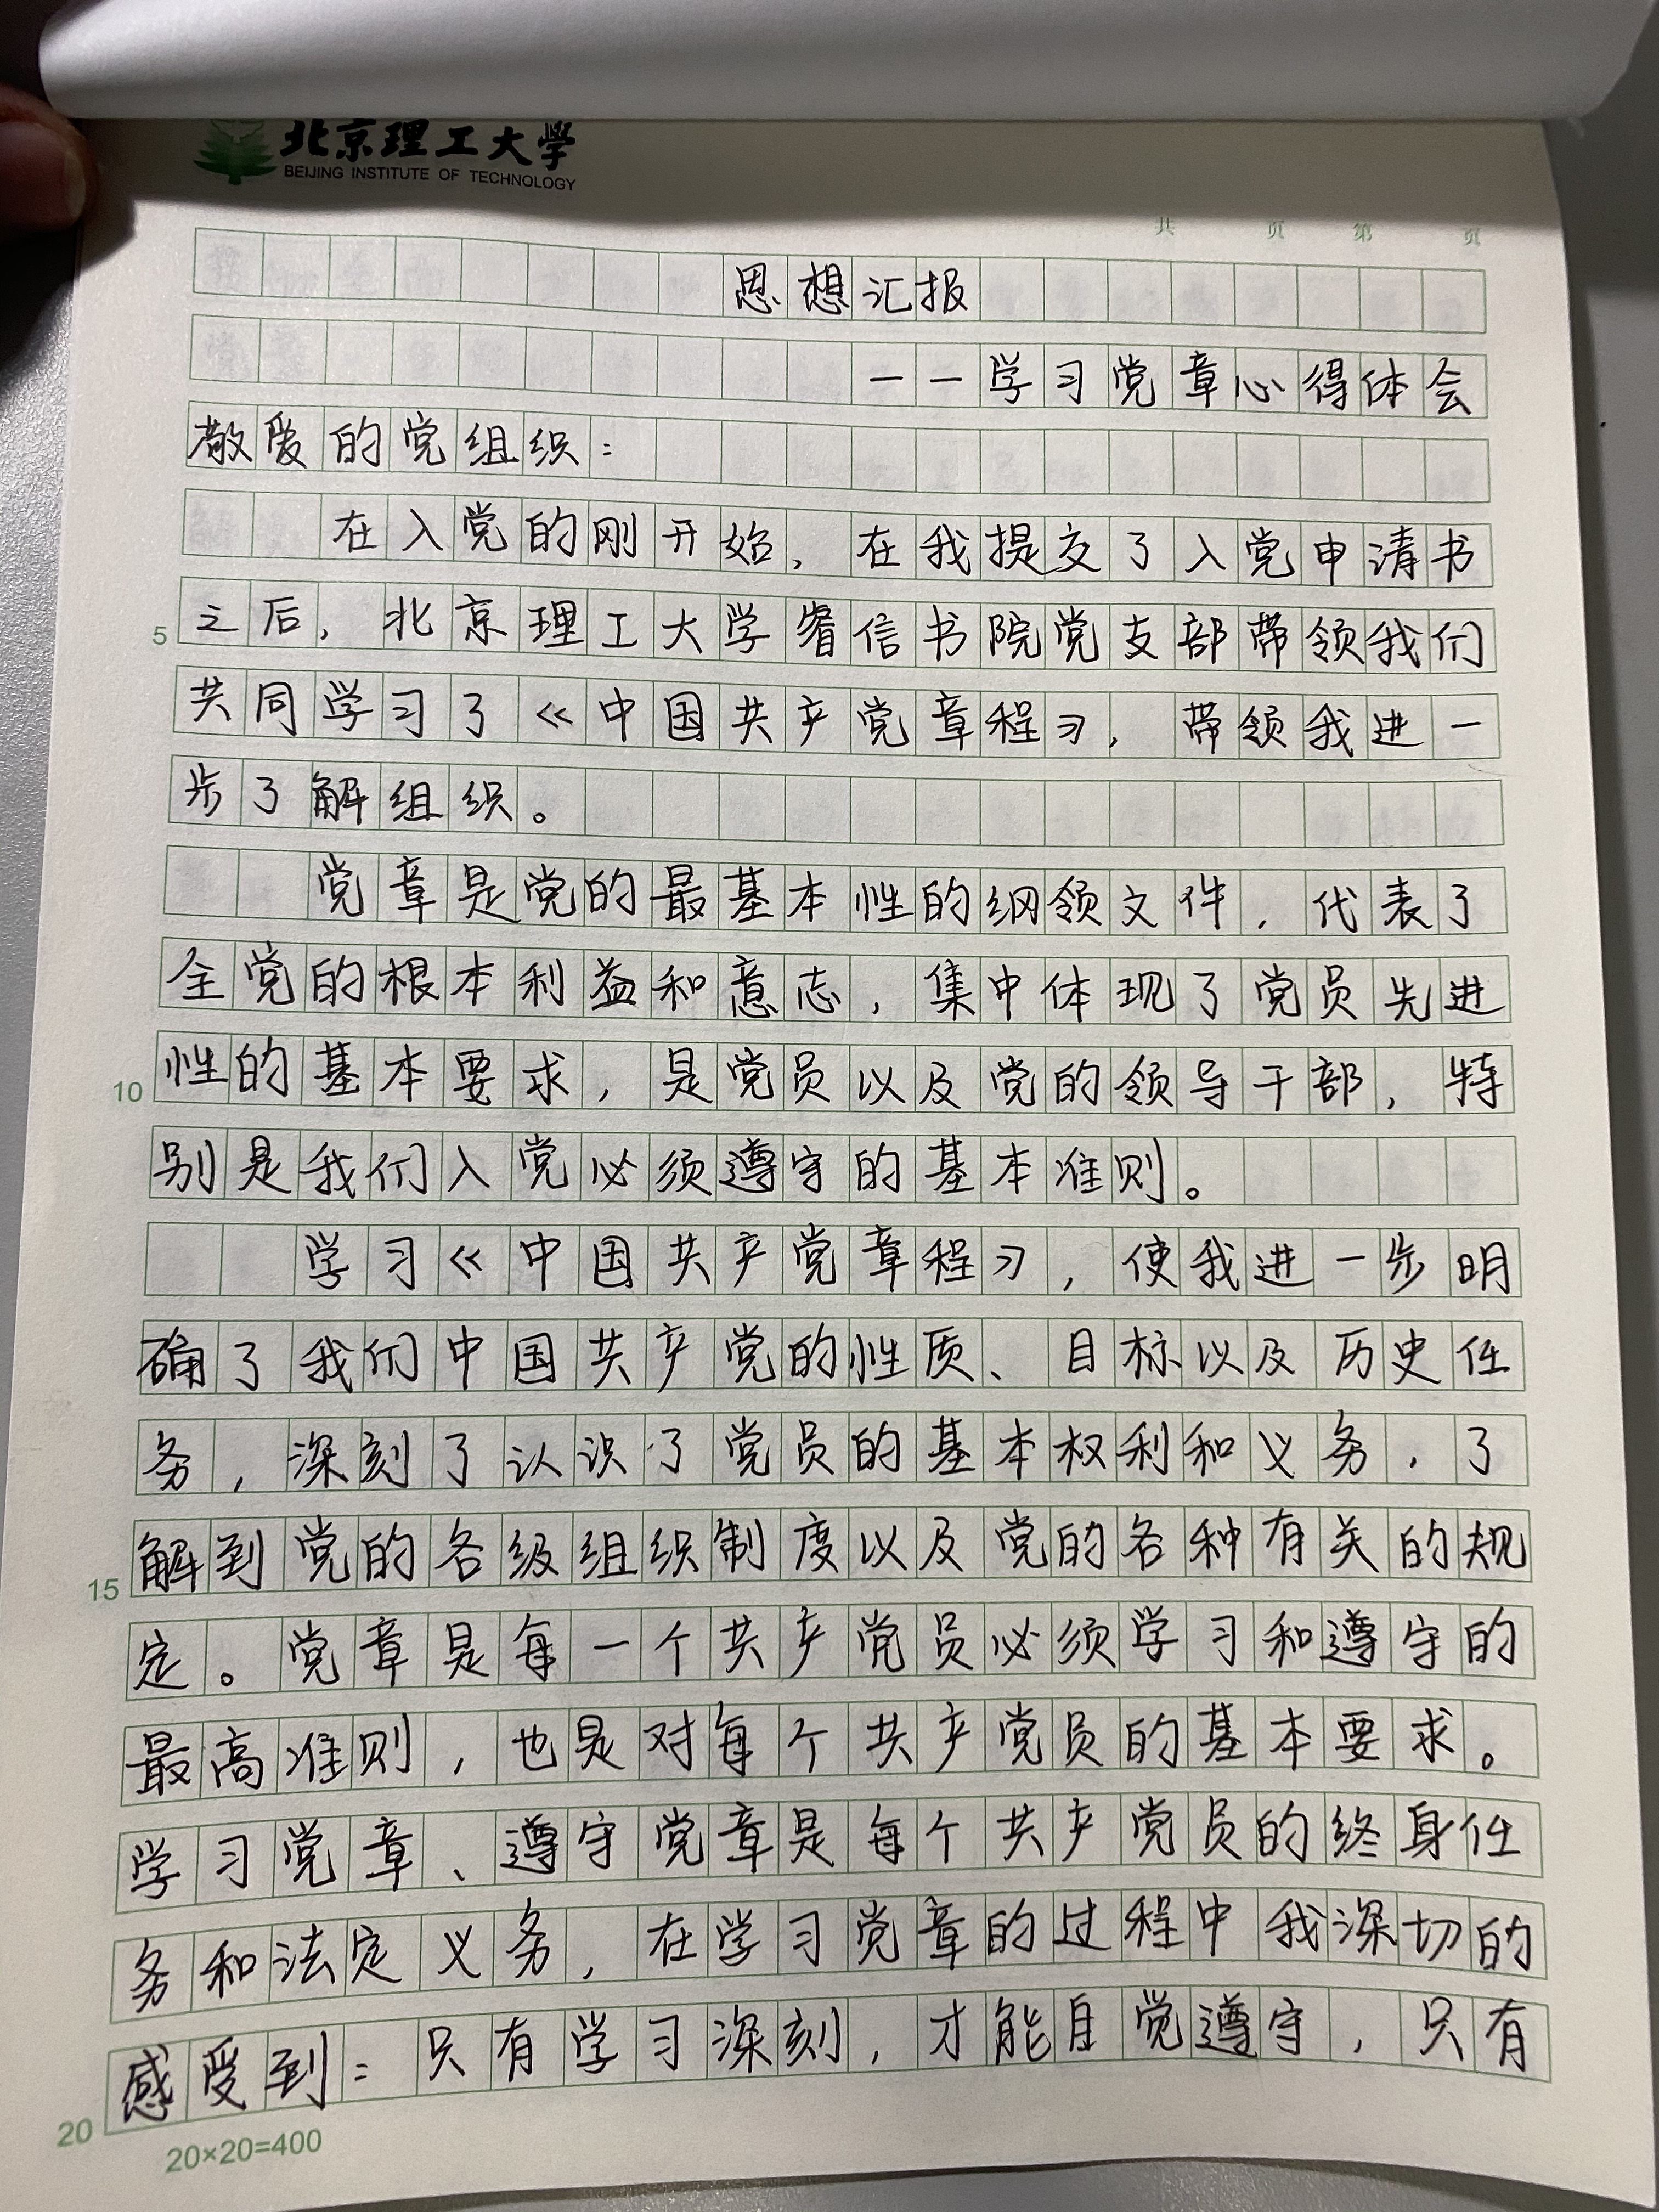 北京理工大学
BEIJING INSTITUTE OF TECHNOLOGY
共 页 第 页
思想汇报
——学习党章心得体会
敬爱的党组织：
在入党的刚开始，在我提交了入党申请书
5 之后，北京理工大学睿信书院党支部带领我们
共同学习了《中国共产党章程》，带领我进一
步了解组织。
党章是党的最基本性的纲领文件，代表了
全党的根本利益和意志，集中体现了党员先进
10 性的基本要求，是党员以及党的领导干部，特
别是我们入党必须遵守的基本准则。
学习《中国共产党章程》，使我进一步明
确了我们中国共产党的性质、目标以及历史任
务，深刻了认识了党员的基本权利和义务，了
15 解到党的各级组织制度以及党的各种有关的规
定。党章是每一个共产党员必须学习和遵守的
最高准则，也是对每个共产党员的基本要求。
学习党章、遵守党章是每个共产党员的终身任
务和法定义务，在学习党章的过程中我深切的
20 感受到：只有学习深刻，才能自觉遵守，只有
20×20=400